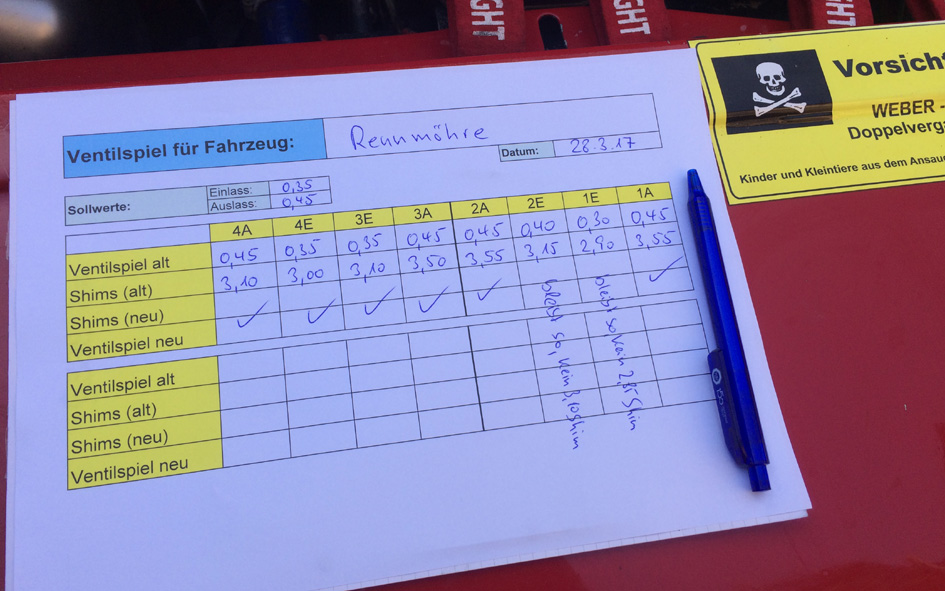 GHT
GHT
GHT
Vorsicht
WEBER -
Doppelverga
Kinder und Kleintiere aus dem Ansau
Ventilspiel für Fahrzeug: Rennmöhre
Datum: 28.3.17
Sollwerte: Einlass: 0,35
Auslass: 0,45
4A 4E 3E 3A 2A 2E 1E 1A
Ventilspiel alt 0,45 0,35 0,35 0,45 0,45 0,40 0,30 0,45
Shims (alt) 3,10 3,00 3,10 3,50 3,55 3,15 2,90 3,55
Shims (neu) ✓ ✓ ✓ ✓ ✓ ✓
Ventilspiel neu
bleibt so, kein 3,10 Shim
bleibt so, kein 2,85 Shim
Ventilspiel alt
Shims (alt)
Shims (neu)
Ventilspiel neu